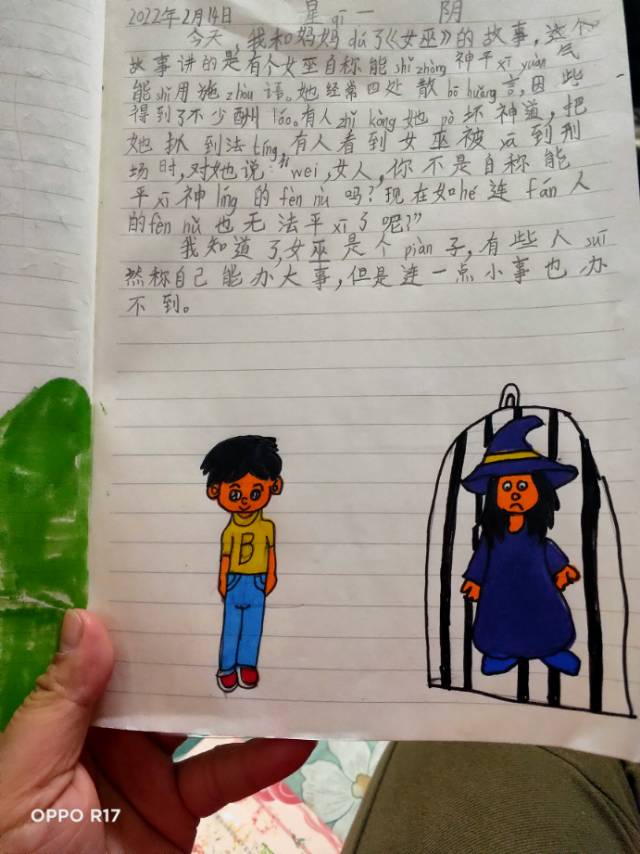 2022年2月14日 星qī一 阴
今天,我和妈妈dú了《女巫》的故事,这个
故事讲的是有个女巫自称能shǐ zhòng神平xī yuàn气
能shǐ用施zhòu语。她经常四处散bō huǎng言,因此
得到了不少酬láo。有人zhǐ kòng她pò坏神道,把
她抓到法tíng,有人看到女巫被yā到刑
场时,对她说:“wèi,女人,你不是自称能
平xī神líng的fèn nù吗?现在如hé连fán人
的fèn nù也无法平xī了呢?”
我知道了,女巫是个piàn子,有些人suī
然称自己能办大事,但是连一点小事也办
不到。
B
OPPO R17